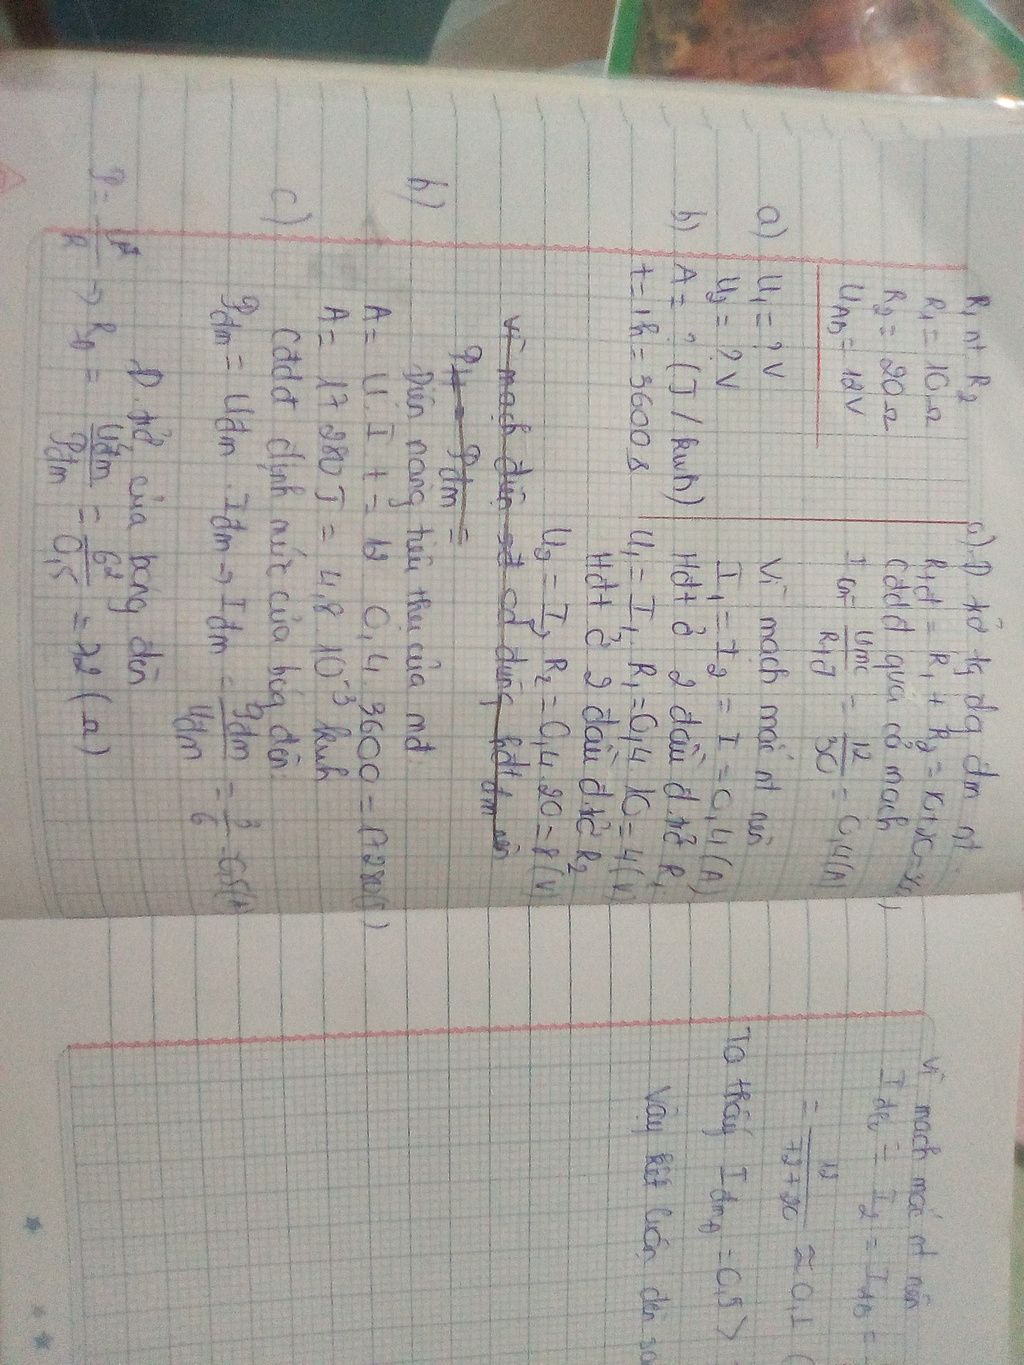 R₁ nt R₂
R₁ = 10Ω
R₂ = 20Ω
U_AB = 12V
a) U₁ = ? V
U₂ = ? V
b) A = ? (J / kwh)
t = 1h = 3600 s
a) Đ trở tg đg đm nt
R₁đ = R₁ + R₂ =
Cđdđ qua cả mạch
= Umc / R₁đ = 12 / 30 = 0,4 (A)
Vì mạch mắc nt nên
I₁ = I₂ = I = 0,4 (A)
Hđt ở 2 đầu đ.trở R₁
U₁ = I₁ . R₁ = 0,4 . 10 = 4 (V)
Hđt ở 2 đầu đ.trở R₂
U₂ = I₂ R₂ = 0,4 . 20 = 8 (V)
Vì mạch điện sd dùng hđt đm nên
= Pđm =
b) Điện năng tiêu thụ của mđ
A = U . I . t = 12 0,4 3600 = 17280 (J)
A = 17 280 J = 4,8 10⁻³ kwh
c) Cđdđ định mức của bóng đèn
Pđm = Uđm . Iđm → Iđm = Pđm / Uđm = 3 / 6 = 0,5 (A
Đ. trở của bóng đèn
P = U² / R → R_Đ = U²đm / Pđm = 6² / 0,5 = 72 (Ω)
Vì mạch mắc nt nên
= I₂ = I_AB =
= 12 / 72 + 20 ≈ 0,1 (
Ta thấy Iđm_Đ = 0,5 >
Vậy kết luận đèn